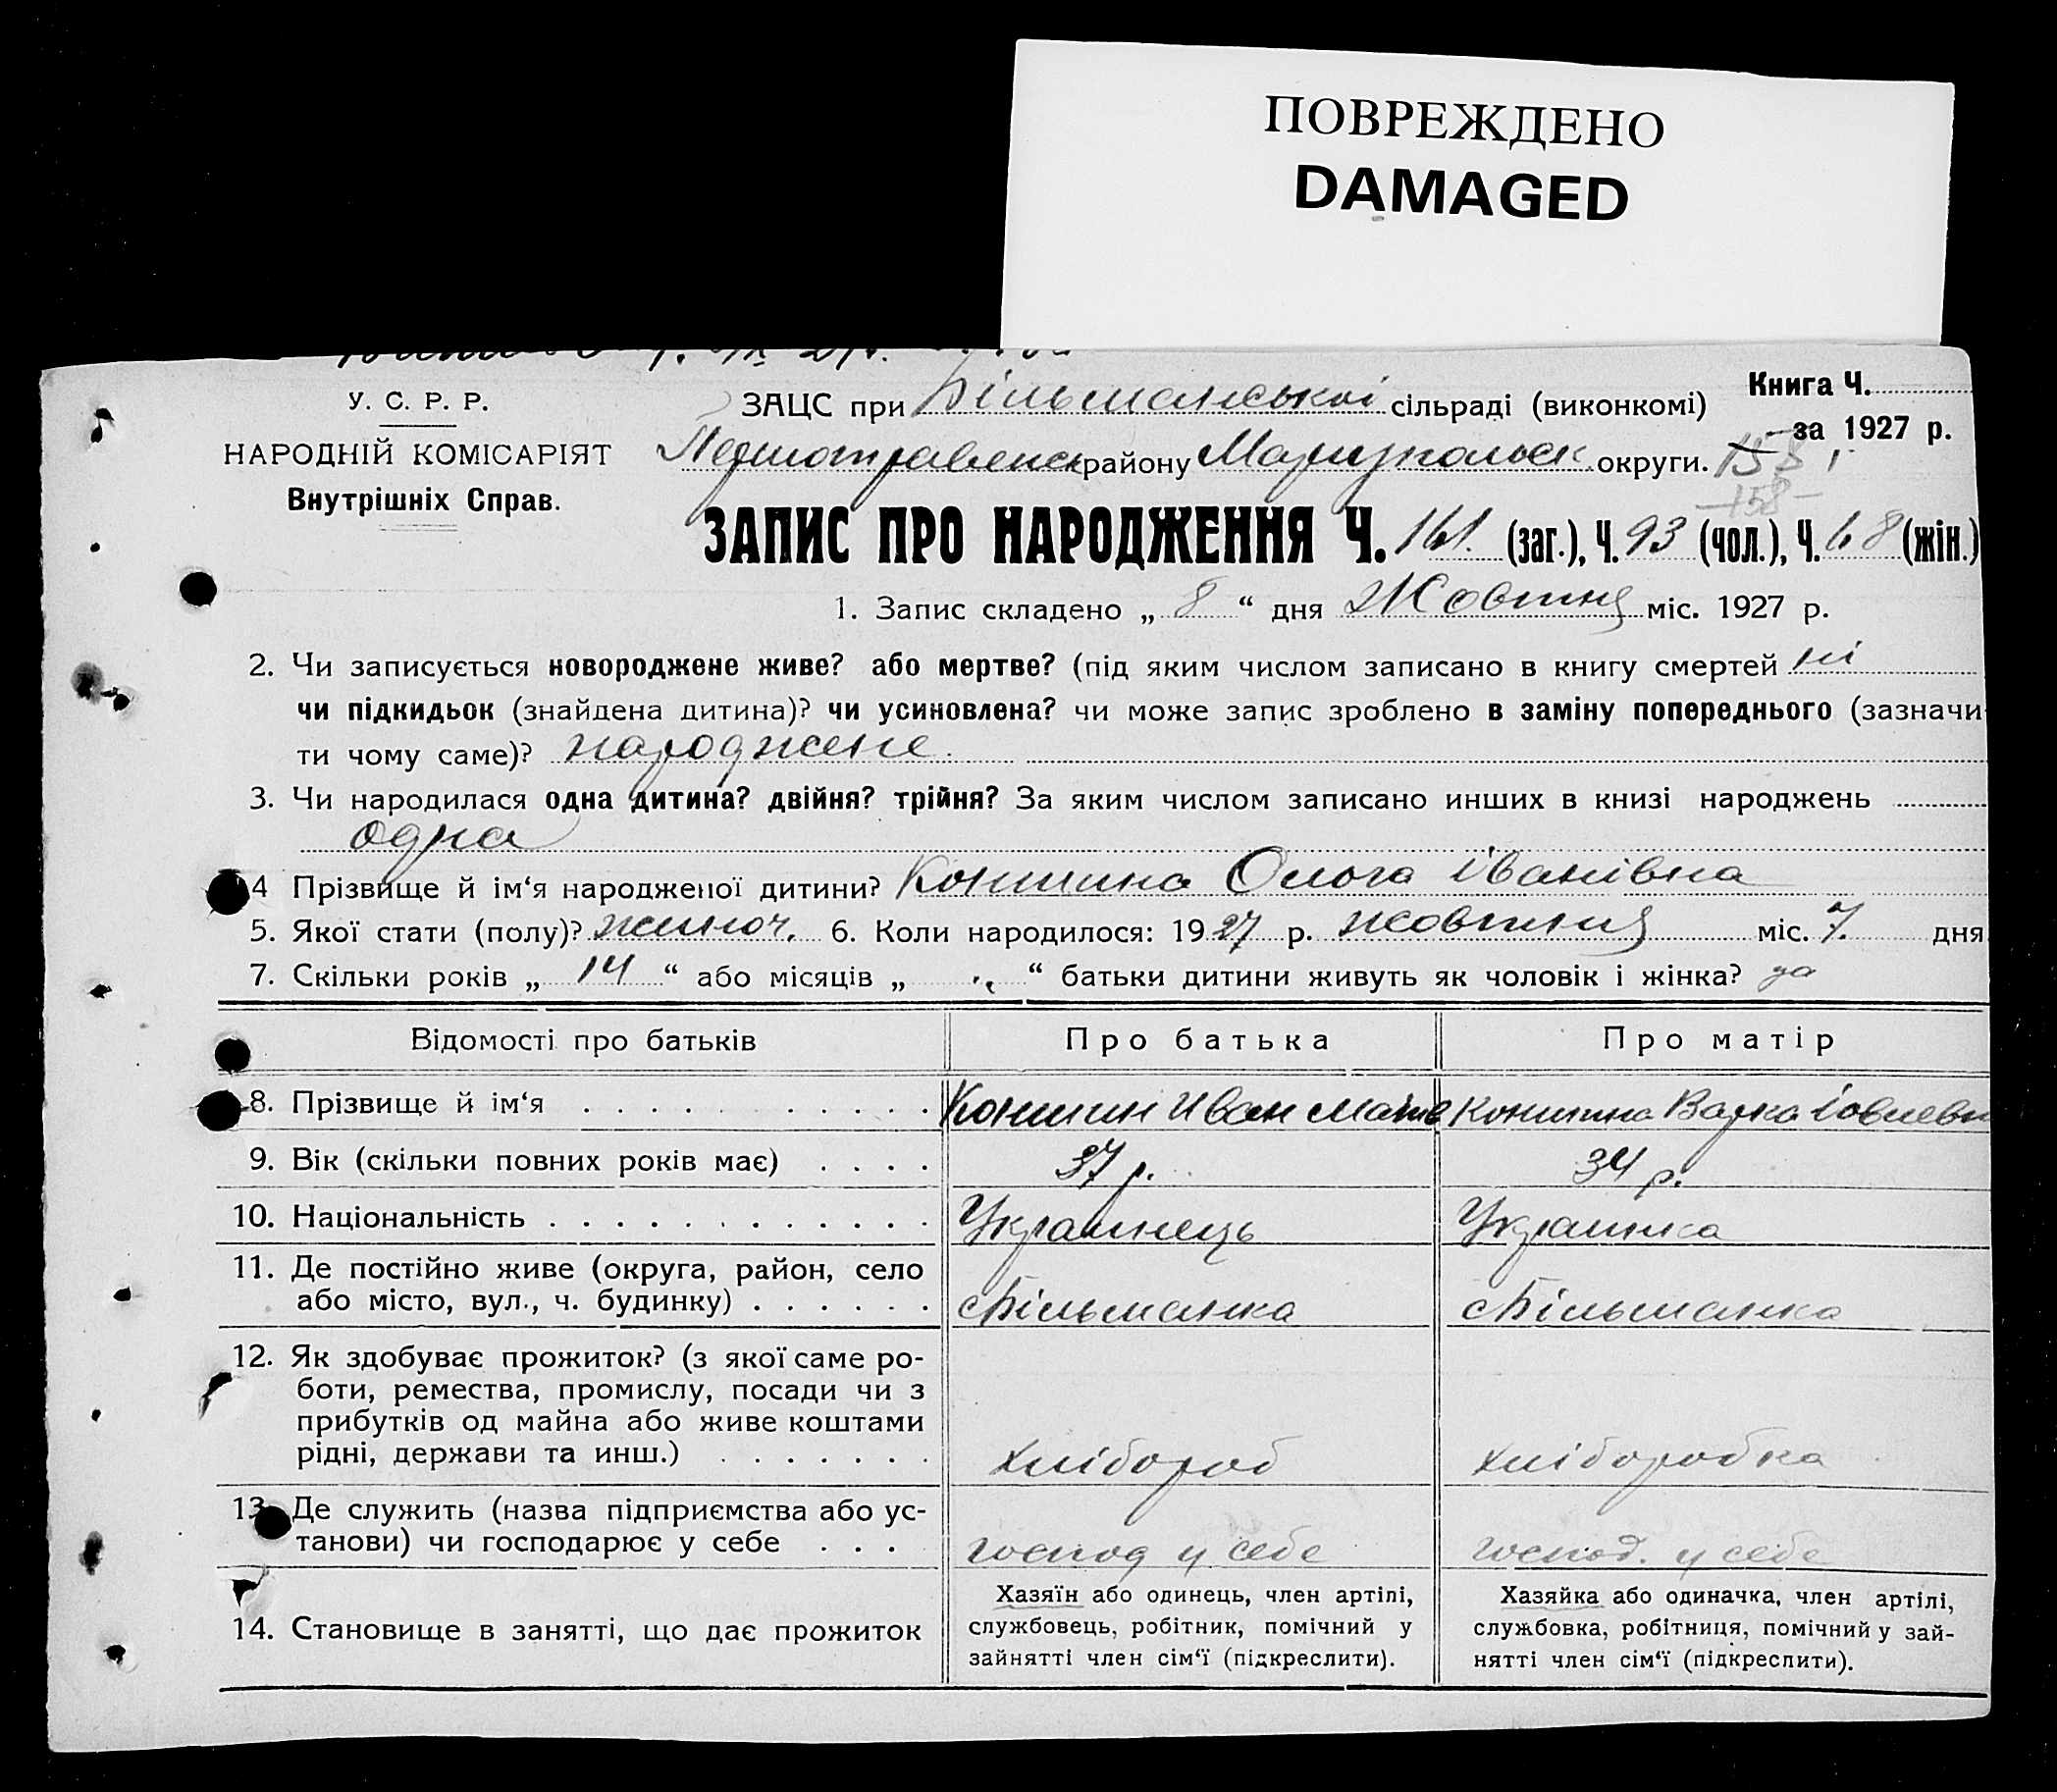 ПОВРЕЖДЕНО
DAMAGED
У. С. Р. Р.
НАРОДНІЙ КОМІСАРІЯТ
Внутрішніх Справ.
ЗАЦС при Більманській сільраді (виконкомі)
Книга Ч.
за 1927 р.
Першотравенськ району Маріупольськ. округи. 153
158
ЗАПИС ПРО НАРОДЖЕННЯ Ч. 161. (заг.), Ч. 93 (чол.), Ч. 68 (жін.)
1. Запис складено „ 8 “ дня Жовтня міс. 1927 р.
2. Чи записується новороджене живе? або мертве? (під яким числом записано в книгу смертей ні
чи підкидьок (знайдена дитина)? чи усиновлена? чи може запис зроблено в заміну попереднього (зазначи-
ти чому саме)? народжене.
3. Чи народилася одна дитина? двійня? трійня? За яким числом записано инших в книзі народжень
одна
4 Прізвище й ім‘я народженої дитини? Коншина Ольга Іванівна
5. Якої стати (полу)? жиноч. 6. Коли народилося: 1927 р. жовтня міс. 7. дня
7. Скільки років „ 14 “ або місяців „ “ батьки дитини живуть як чоловік і жінка? да
Відомості про батьків Про батька Про матір
8. Прізвище й ім‘я Коншин Иван Матв Коншина Варка Іовлевн
9. Вік (скільки повних років має) 37 р. 34 р.
10. Національність Украинець Украинка
11. Де постійно живе (округа, район, село
або місто, вул., ч. будинку) с Більманка с Більманка
12. Як здобуває прожиток? (з якої саме ро-
боти, ремества, промислу, посади чи з
прибутків од майна або живе коштами
рідні, держави та инш.) хлібороб хліборобка
13. Де служить (назва підприємства або ус-
танови) чи господарює у себе господ у себе господ. у себе
14. Становище в занятті, що дає прожиток
Хазяїн або одинець, член артілі,
службовець, робітник, помічний у
зайнятті член сім‘ї (підкреслити).
Хазяйка або одиначка, член артілі,
службовка, робітниця, помічний у зай-
нятті член сім‘ї (підкреслити).